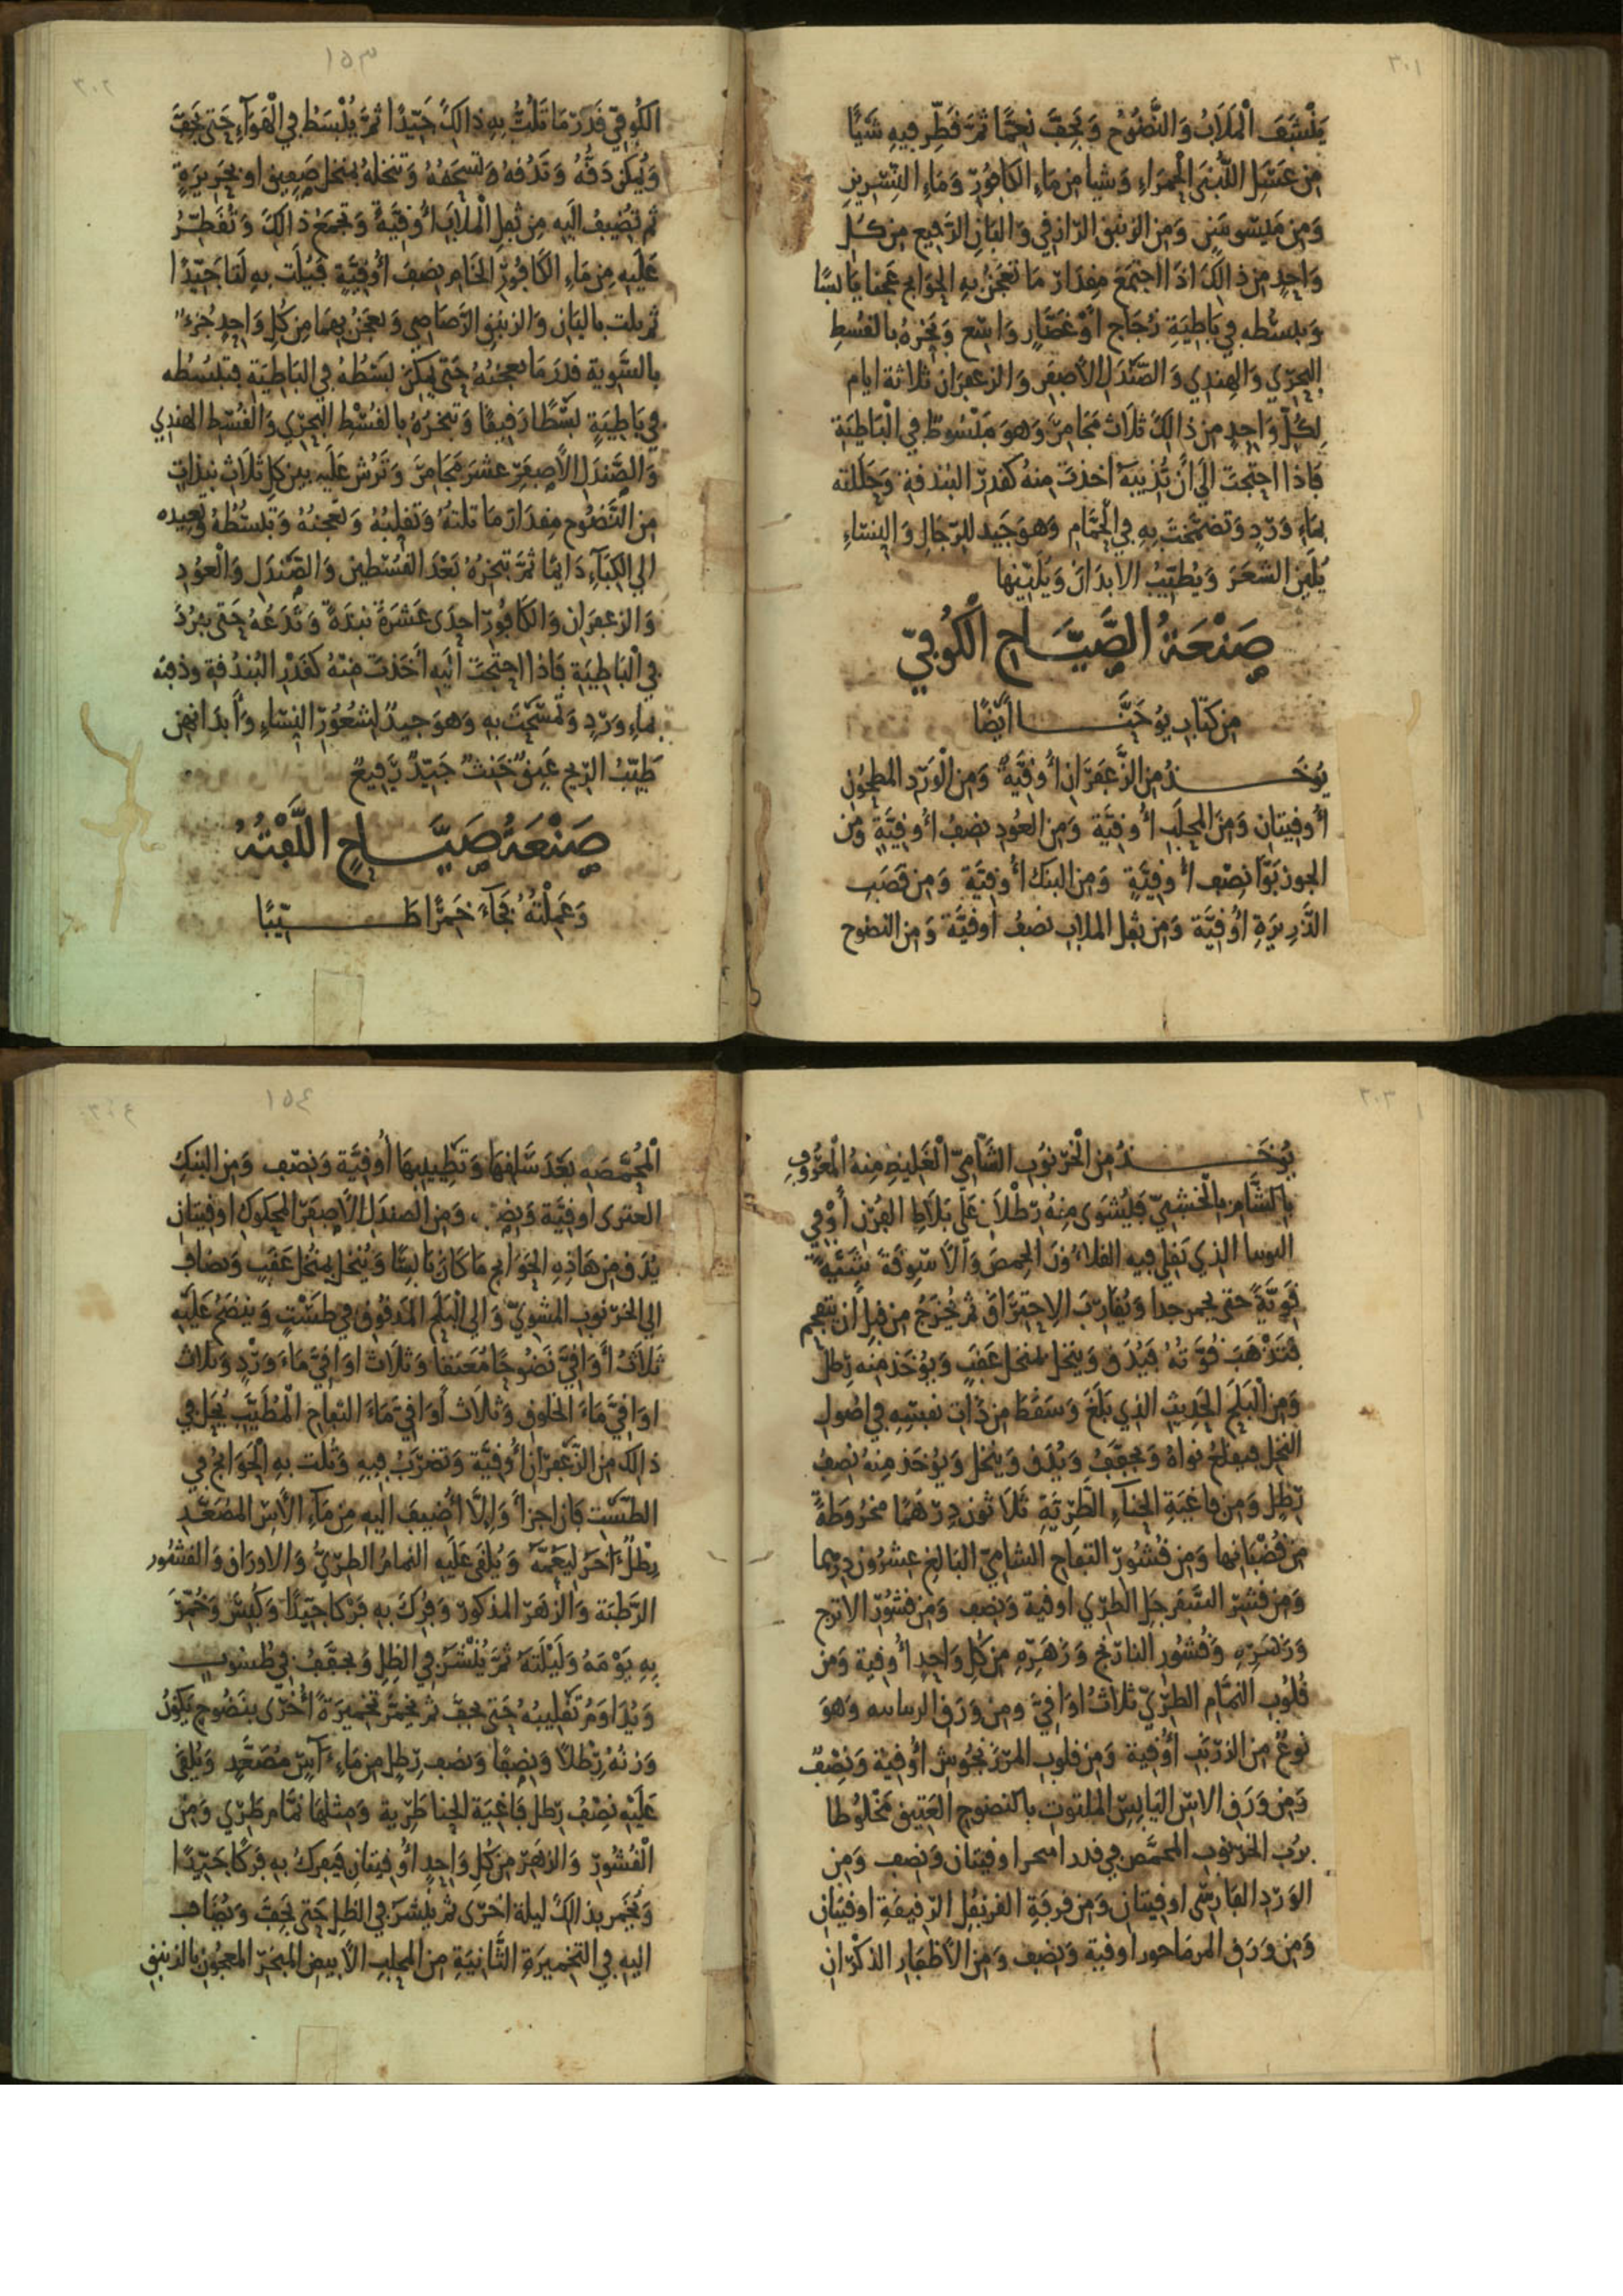 ٣٠١
يَنْشَفَ الْمَلَابُ وَالنَّضُوْح وَيَجِفَّ نَعِمًّا ثُمَّ قَطِّر فِيهِ شَيًا
مِن عَسَلِ اللُّبْنَى الْحَمرَاءِ وَشيا مِن مَاءِ الكَافوُر وَمَاءِ النِّسْرِينِ
وَمِن مَيْسُوسَنٍ وَمِن الزنبق الرَّازفي وَالبَانِ الرَّفِيعِ مِن كُلِ
وَاحِدٍ مِن ذالكَ اذَا اجتَمَعَ مِقدَار مَا تعجَنُ بِهِ الحَوَايج عَجنا يَابسًا
وَبسُطه فِي بَاطِيَةِ زُجَاج أوْ غَضَار وَاسِع وَبَخّرَهُ بالقُسطِ
البَحرِّي وَالهِندِي وَالصَّنْدَلِ الاصفَر وَالزعفرَان ثلاثة ايام
لِكُلّ وَاحِدٍ من ذالِكَ ثلَاث مَجَامِرَ وَهوَ مَبْسُوطَ فِي الْبَاطِيَة
فَاذا احتَجت الَي ان تُذِيبَهُ اخذتَ مِنهُ كقَدر البُندقة وَحَللته
بمَاءِ وَرْدٍ وَتضمَّختَ بِهِ فِي الحَمَّام وَهوَ جَيد للرّجَالِ وَالنسَاءِ
يُلَين الشعَرَ وَيُطيّبُ الابدَانَ وَيُلَيّنها
صَنْعَةُ الصَّيَّاحِ الْكُوفِيّ
مِن كتَاب يوُحَنَّا ايْضًا
يؤخَذُ مِن الزَّعفَرَان أُوقيَّةٌ وَمِن الْوَرّد المطحُون
أُوقيتان وَمِنَ المحلَبِ أُوقيَّة وَمِن العُودِ نصفُ أُوقيَّةٍ وَمِن
الجوزبَوَّا نِصْفُ أُوقيَّةٍ وَمِن البنك أُوقيَّة وَمِن قصَبِ
الذَّرِيرَةِ أُوقيَّة وَمِن ثفل الملاب نصْفُ اوقيَّة وَمِن النضوح
١٥٣
٣٠٢
الكُوفيّ قَدَر مَا تَلُتُّ بِهِ ذالِكَ جَيّدًا ثمَّ يُبْسَطُ فِي الْهَوَآءِ حَتى يَجِفَّ
وَيُمكن دَقُّهُ وَتَدُقهُ وَتسحَقهُ وَتنخلهُ بمنخل صَفيق اوبحَرِيرَةٍ
ثم تُضِيفُ الَيهِ مِن ثفلِ المْلَابِ أُوقِيَّةً وَتجمَعْ ذالِكَ وَتُقَطّرُ
عَلَيهِ مِن مَاءِ الكَافُور الخَامِ نصْفَ أُوقيَّةٍ فيُلَت بهِ لَتا جَيّدًا
ثم يلت بالبَانِ وَالزنبقِ الرَّصَاصِي وَيعجَنُ بِهِمَا مِن كُلِ وَاحِدٍ جُزءٌ
بالسَّوِيةِ قدرَ مَا يعجنهُ حَتى يُمكن بَسْطُهُ فِي البَاطِيَة فتبسُطه
فِي بَاطِيَةٍ بَسْطًا رَقِيقًا وَتبخرَهُ بالقُسْطِ البَحرّي وَالْقُسْطِ الهندِي
وَالصَّندَلِ الاصفَرِ عشرَ مَجَامِرَ وَتَرُش عَلَيهِ بين كلِ ثَلَاث نبذات
مِن النَّضُوح مِقدَارَ مَا تلتهُ وَتقلبُهُ وَتعجنُهُ وَتبسُطُهُ وَتعِيده
الي الكِبَآءِ دَايمًا ثمَّ تبخِرُهُ بَعْدَ القُسْطين وَالصَّندَلِ وَالْعوُدِ
وَالزعفَرَان وَالكَافوُر احدَى عَشرَةَ نبذةً وَتَدَعُهُ حَتى يبرُدَ
فِي الْبَاطِيَةِ فَاذا احتَجتَ الَيهِ أخَذت مِنْهُ كَقَدْرِ البُندُقة وذفتَه
بماءِ وَرّدٍ وَتمسَّحْتَ بِهِ وَهوَ جيدٌ لشعُوْر النِسَاءِ وَأبدَانهِن
طَيِّبُ الرّيح عَبق خَنِث جَيّدٌ رَفِيعٌ
صَنْعَةُ صَيَّاحٍ اللَّفتُهُ
وَعَمِلْتُهُ فَجَآءَ خَمرًا طَيّبًا
٣٠٣
يُوخَذُ مِن الْخَرّنوُبِ الشَّامِيّ الْغَلِيظِ مِنهُ الْمعْرُوفِ
بالشَّامِ بالْخَشَبيّ فيُشوَى مِنهُ رطْلَان عَلَي بَلَاطِ الفُرن أوْ فِي
الذي تقلي فيه القلاءُونَ الحِمصَ وَالاسْوِقَةَ شيَّةً
قوِيَّةً حَتى يحمر جدا وَيُقارِبَ الاحتِرَاقَ ثم يُخرَجُ مِن قبل أن يتفحم
فتذهَبَ قُوَّتهُ فيُدَق وَينخل بمنخل عَقَبٍ وَيؤخذ مِنهُ رِطل
وَمِن الْبَلَحِ الحَدِيثِ الذِي بَلَغَ وَسَقطَ مِن ذَات نفسِهِ فِي اصُول
النخل فيقلعُ نوَاهُ وَيجففُ وَيُدَق وَينخل وَيؤخذ مِنهُ نصفُ
رّطلٍ وَمِن فاغيَةِ الحِنآءِ الطَّرِيَّةِ ثَلَاثون دِرّهَمًا مخرُوطةً
مِن قُضْبَانها وَمِن قُشور التفاح الشامِيّ البَالغِ عِشرُون درهما
وَمِن قشرِ السَّفرجَلِ الطرّي اوقية وَنصف وَمِن قشُورِ الاترج
وَزهَرِّهِ وَقُشور النارّنج وَزهَرِّهِ مِن كلِ وَاحِدٍ أُوقية وَمِن
قُلُوبِ النمَّام الطرّيّ ثلَاثُ أوَاقِيَّ وَمِن وَرَق وَهوَ
نوعٌ مِن الزرّنبِ أُوقية وَمِن قلوبِ المرّزنجوش أُوقيَّة وَنصْفٌ
وَمِن وَرَق الاسّ اليَابسِّ الملتوت بالنضوحِ العَتيق مَخْلُوطًا
برُب الخرّنوب المحمَّص فِي قدر اوقيتان وَنصف وَمِن
الوَرّدِ الفَارسِّي اوقيتان وَمِن قرفةِ القرنفلِ الرّقيقةِ اوقيتَان
وَمِن وَرَقِ المرمَاحور اوقية وَنصف وَمِن الاظفارِ الذكرّانِ
١٥٤
٣٠٤
الْمُحَمَّصَهِ بَعْدَ سَلْقهَا وَتَطييبهَا أُوقيَّة وَنصْف وَمِن البنكِ
اوقيَّة وَنِصْ، وَمِن الصندَل الاصفَر المحكُوك اوقيتان
يُدَق مِن هَاذِهِ الحَوَايج مَا كَان يَابسًا وَيُنخل بمنخل عَقَبٍ وَيضاف
الي الخرّنوبِ المشوِيّ وَالي الْبَلَحِ المَدقوق فِي طسْتٍ وَينضَحُ عَلَيْهِ
ثَلاثُ أوَاقيَّ نَضُوحًا مُعَتقا وَثلَاث اوَاقيَّ مَاءَ وَرْدٍ وَثلَاث
اوَاقيَّ مَاءَ الخَلوق وَثلَاث أوَاقيَّ مَاءَ التفاح الْمُطَيَّبِ يُحَل فِي
ذالك مِن الزّعفرّان أُوقيَّة وَتضرَبُ فيهِ وَتُلت بِهِ الْحَوَايجُ فِي
الطسْت فَان اجزأ وَإلَّا أُضِيفَ اليهِ مِن مَآءِ الاسّ المصَعَّدِ
رِطْلٌ اخَر لِيَعُمَّهُ وَيُلقى عَلَيهِ النمامُ الطرّيُّ وَالاورَاق وَالقشور
الرَّطبَة وَالزهَرّ المذكور وَفرِكَ بِهِ فَرّكا جَيّدًا وَكُبِسَ وَخُمِّرَ
بِهِ يَوْمَهُ وَلَيْلَتهُ ثمَّ يُنْشَرُ فِي الظِلِ وَيجففُ فِي طسُوتٍ
وَيُدَاوَمُ تقلِيبُهُ حَتى يجفَّ ثم يخمَّرُ تخميرَةً أُخْرَى بنَضُوحٍ يَكُونُ
وَزنُهُ رِطْلًا وَنِصْفًا وَنصفِ رِّطلٍ مِن مَاءِ آسٍّ مُصَعَّدٍ وَيُلقَى
عَلَيْهِ نِصْفُ رِّطل فَاغِيَة الحِنا طرّيةً وَمِثلهَا نمَّام طرّي وَمِن
الْقشُور وَالزهَرّ مِن كُلِ وَاحِدٍ أُوقيتانِ فيُفرَكُ بِهِ فَرّكًا جَيّدًا
وَيُخَمر بذالكَ ليلة اخرَى ثم يُنشرّ فِي الظلِ حَتى يَجِفَّ وَيُضاف
اليهِ فِي التخمِيرَةِ الثَّانيَةِ مِن المحلَبِ الابيضِ المبخرّ المعجُون بالزنبق